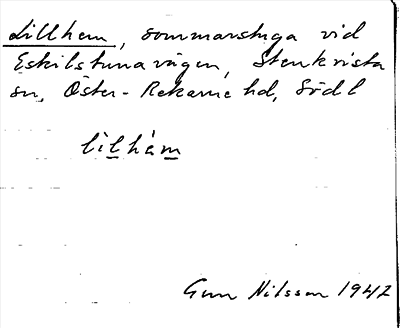 Lillhem, sommarstuga vid
Eskilstunavägen, Stenkvista
sn, Öster-Rekarne hd, Södl
lìlhém
Gun Nilsson 1947